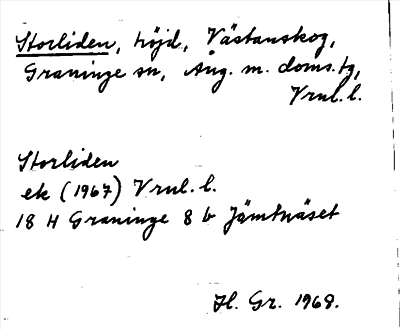 Storliden, höjd, Västanskog,
Graninge sn, Ång. m. doms.tg,
Vrnl. l.
Storliden
ek (1967) Vrnl. l.
18 H Graninge 8 b Jämtnäset
H. Gr. 1968.